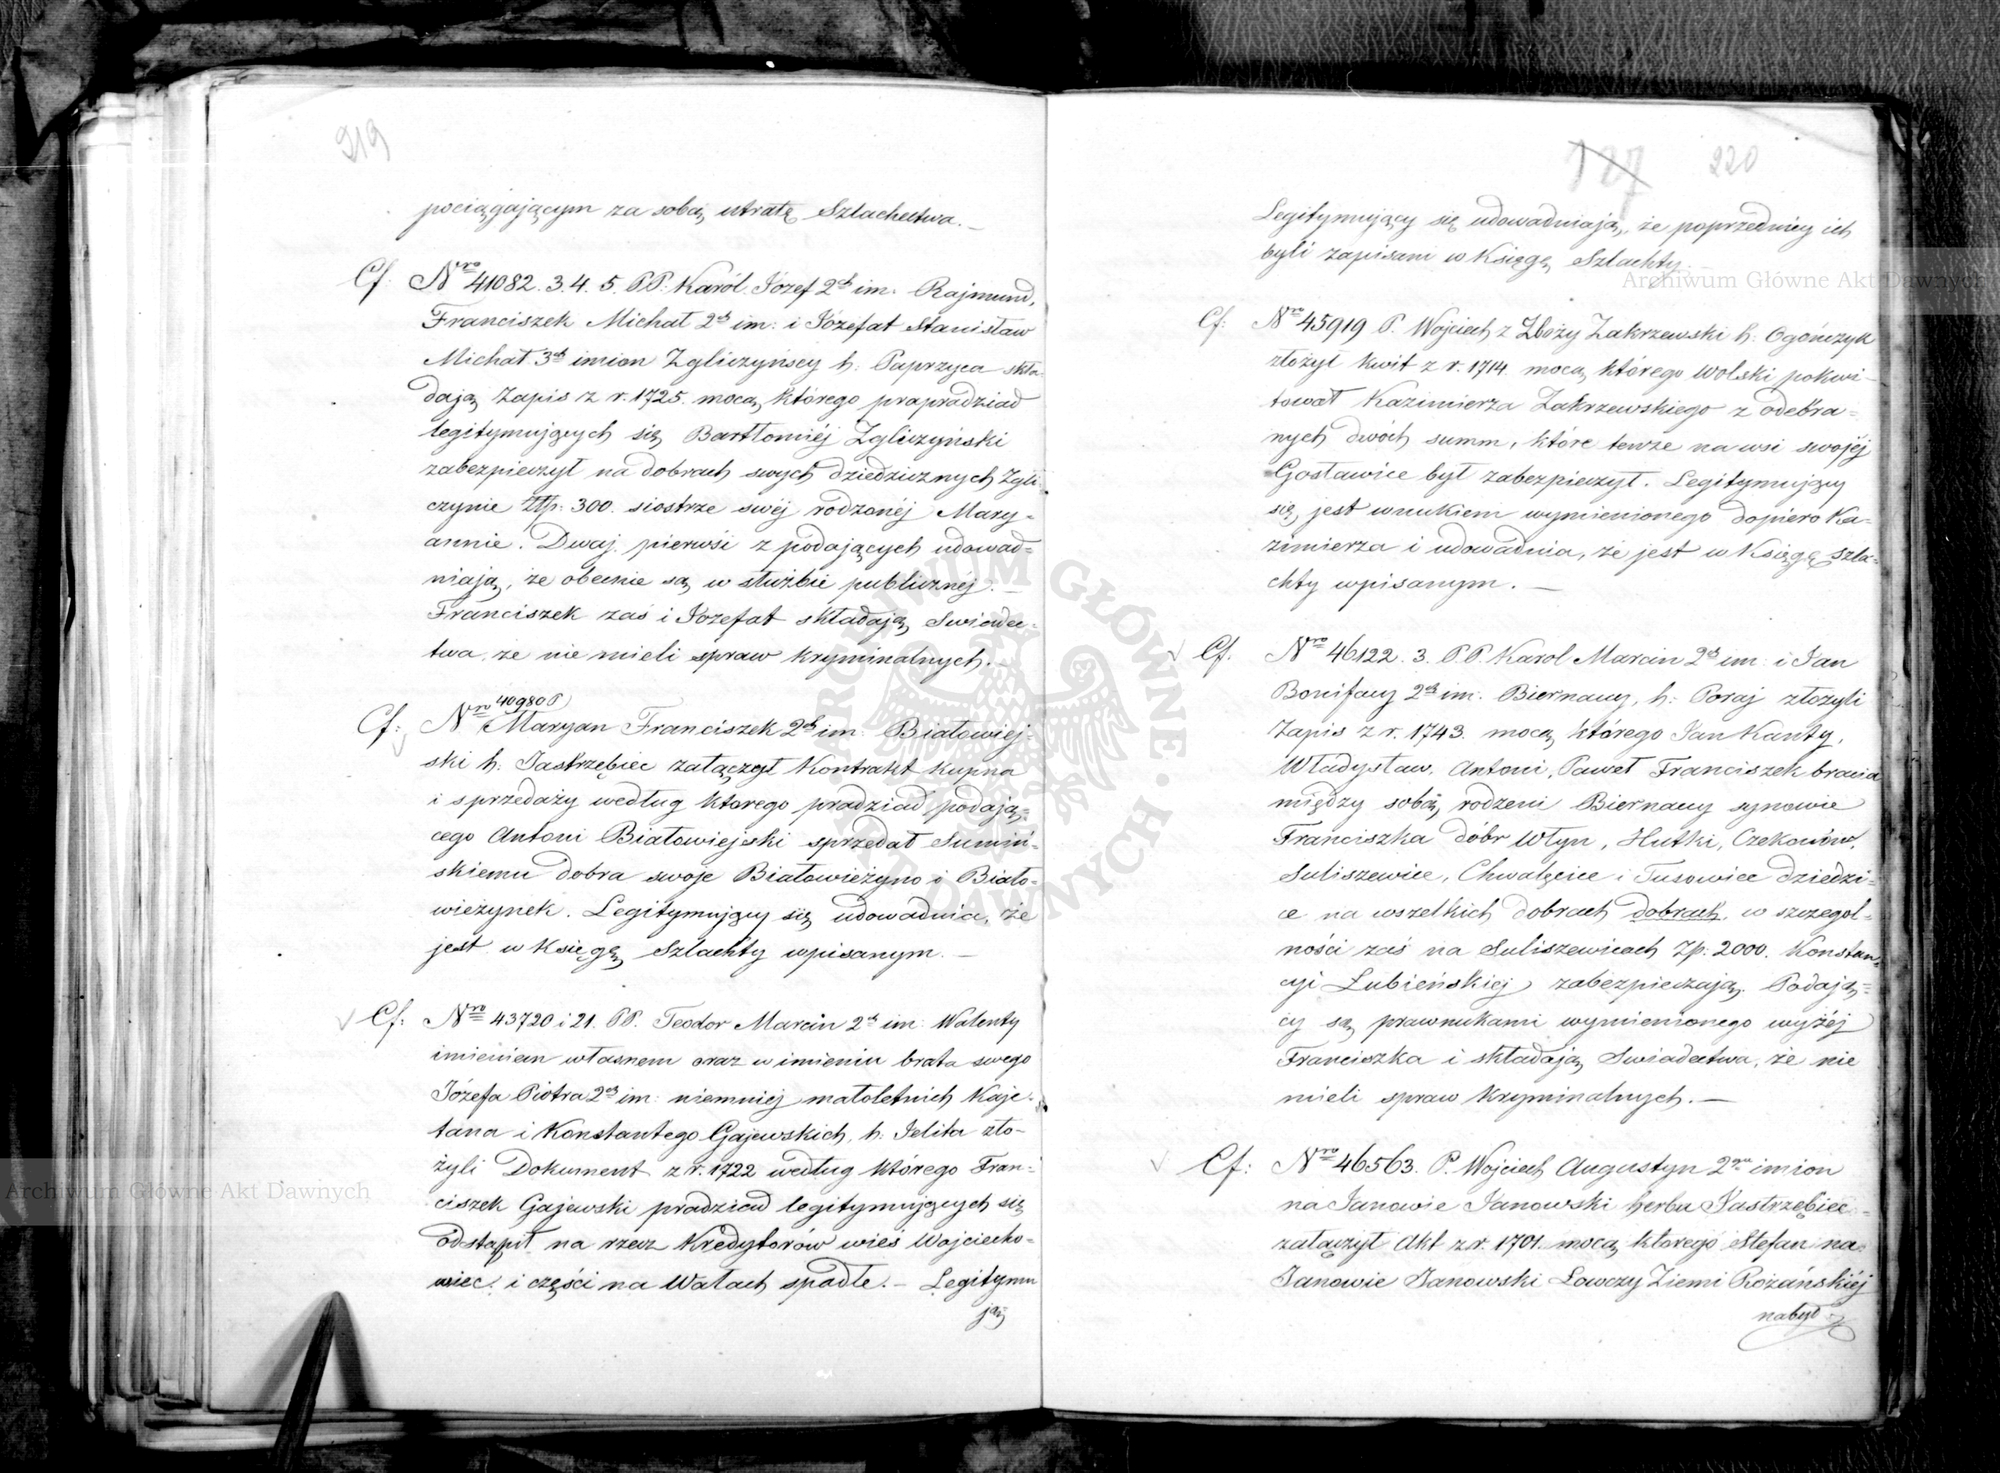 219
pociągającym za sobą utratę Szlachectwa. —
Cf. Nro 41082. 3. 4. 5. PP. Karól Józef 2ch im. Rajmund,
Franciszek Michał 2ch im: i Józefat Stanisław
Michał 3ch imion Zgliczyńscy h. Paprzyca skła
dają Zapis z r. 1725. mocą którego prapradziad
legitymujących się Bartłomiéj Zgliczyński
zabezpieczył na dobrach swych dziedzicznych Zgli
czynie Złp: 300. siostrze swéj rodzonéj Mary-
annie. Dwaj pierwsi z podających udowad=
niają, że obecnie są w służbie publicznéj. —
Franciszek zaś i Józefat składają Swiadec=
twa, że nie mieli spraw kryminalnych. —
Cf: Nro 40980 P Maryan Franciszek 2ch im: Białowiej-
ski h. Jastrzębiec załączył Kontrakt kupna
i sprzedaży według ktorego pradziad podają=
cego Antoni Białowiejski sprzedał Sumiń=
skiemu dobra swoje Białowieżyno i Biało=
wieżynek. Legitymujący się udowadnia, że
jest w Księgę Szlachty wpisanym. —
Cf: Nro 43720 i 21. PP. Teodor Marcin 2ch im: Walenty
imieniem własnem oraz w imieniu brata swego
Józefa Piotra 2ch im: niemniej małoletnich Kaje-
tana i Konstantego Gajewskich, h. Jelita zło-
żyli Dokument z r. 1722 według którego Fran=
ciszek Gajewski pradziad legitymujących się
odstąpił na rzecz Kredytorów wieś Wojciecho=
wiec i części na Wałach spadłe. — Legitymu
ją
127 220
Legitymujący się udowadniają, że poprzednicy ich
byli zapisani w Księgę Szlachty.
Cf: Nro 45919 P. Wojciech z Zboży Zakrzewski h: Ogończyk
złożył kwit z r. 1714. mocą którego Wolski pokwi-
tował Kazimierza Zakrzewskiego z odebra=
nych dwóch summ, które tenże na wsi swojéj
Gosławice był zabezpieczył. Legitymujący
się jest wnukiem wymienionego dopiero Ka=
zimierza i udowadnia, że jest w Księgę szla=
chty wpisanym. —
Cf. Nro 46122. 3. P.P. Karol Marcin 2ch im: i Jan
Bonifacy 2ch im: Biernaccy, h: Poraj złożyli
Zapis z r. 1743. mocą którego Jan Kanty,
Władysław, Antoni, Paweł Franciszek bracia
między sobą rodzeni Biernaccy synowie
Franciszka dóbr Włyn, Hutki,
Suliszewice, Chwalęcice i Tusowice dziedzi=
ce na wszelkich dobrach dobrach, w szczegol=
ności zaś na Suliszewicach Zp: 2000. Konstan=
cyi Łubieńskiej zabezpieczają. Podają=
cy są prawnukami wymienionego wyżéj
Franciszka i składają Swiadectwa, że nie
mieli spraw kryminalnych. —
Cf: Nro 46563. P. Wojciech Augustyn 2ga imion
na Janowie Janowski herbu Jastrzębiec
załączył Akt z r. 1701. mocą ktorego Stefan na
Janowie Janowski Łowczy Ziemi Rożańskiéj
nabył
Archiwum Główne Akt Dawnych
Archiwum Główne Akt Dawnych
ARCHIWUM GŁÓWNE AKT DAWNYCH